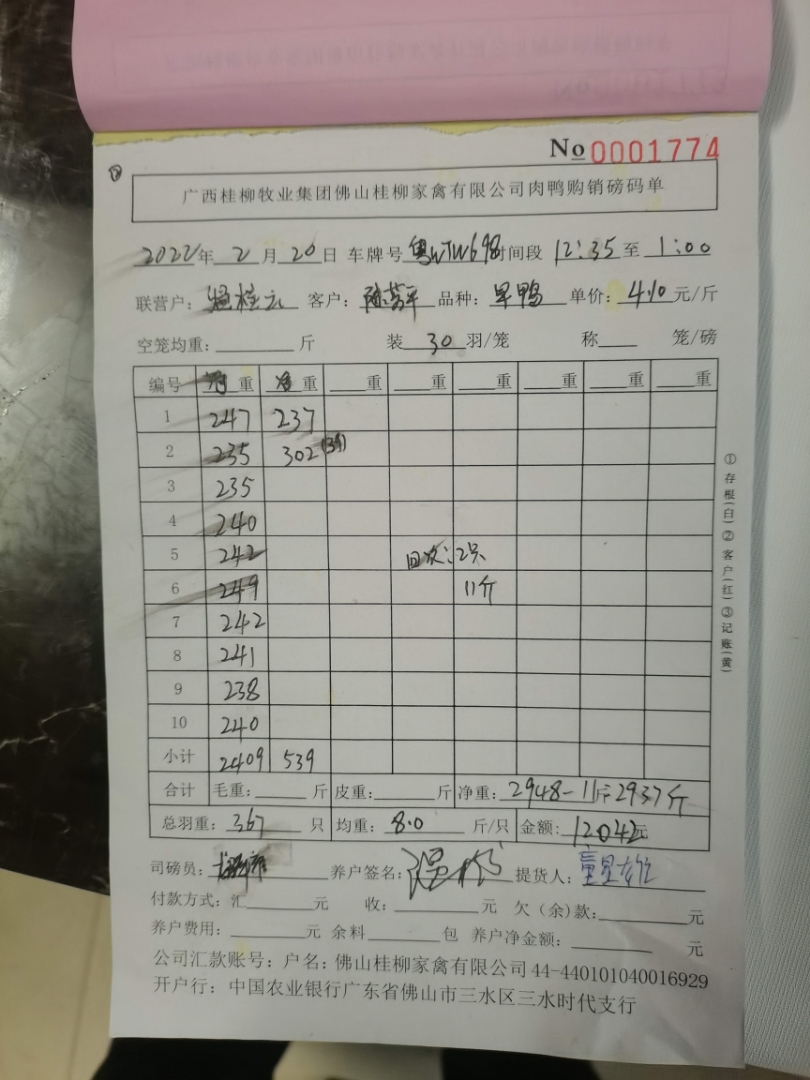 No 0001774
广西桂柳牧业集团佛山桂柳家禽有限公司肉鸭购销磅码单
2022年 2月 20日 车牌号 粤WTW698 时间段 12:35 至 1:00
联营户: 温桂云 客户: 陈芳平 品种: 旱鸭 单价: 4.10 元/斤
空笼均重: 斤 装 30 羽/笼 称 笼/磅
编号 净重 净重 重 重 重 重 重 重
1 247 237
2 235 302 (39)
3 235
4 240
5 242 回收:2只
6 249 11斤
7 242
8 241
9 238
10 240
小计 2409 539
合计 毛重: 斤 皮重: 斤 净重: 2948-11斤 2937斤
总羽重: 367 只 均重: 8.0 斤/只 金额: 12042元
司磅员: 养户签名: 提货人:
付款方式: 汇 元 收: 元 欠(余)款: 元
养户费用: 元 余料 包 养户净金额: 元
公司汇款账号: 户名: 佛山桂柳家禽有限公司 44-440101040016929
开户行: 中国农业银行广东省佛山市三水区三水时代支行
①存根(白)②客户(红)③记账(黄)